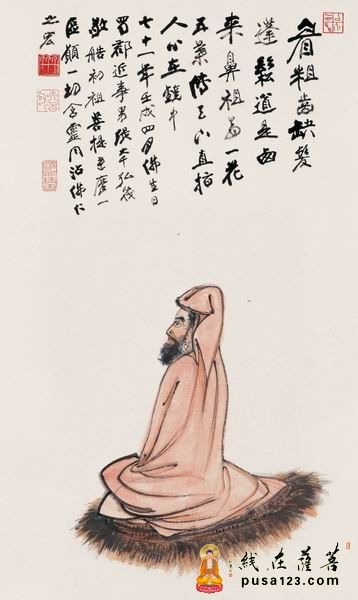 眉粗齒缺髮
蓬鬆道是西
來鼻祖翁一花
五葉傳天下直指
人心在鏡中
七十一年壬戌四月佛生日
蜀郡近事男張大千弘筏
敬艁初祖菩提達磨一
區願一切含靈同沾佛仁
之宏
菩薩在线
pusa123.com